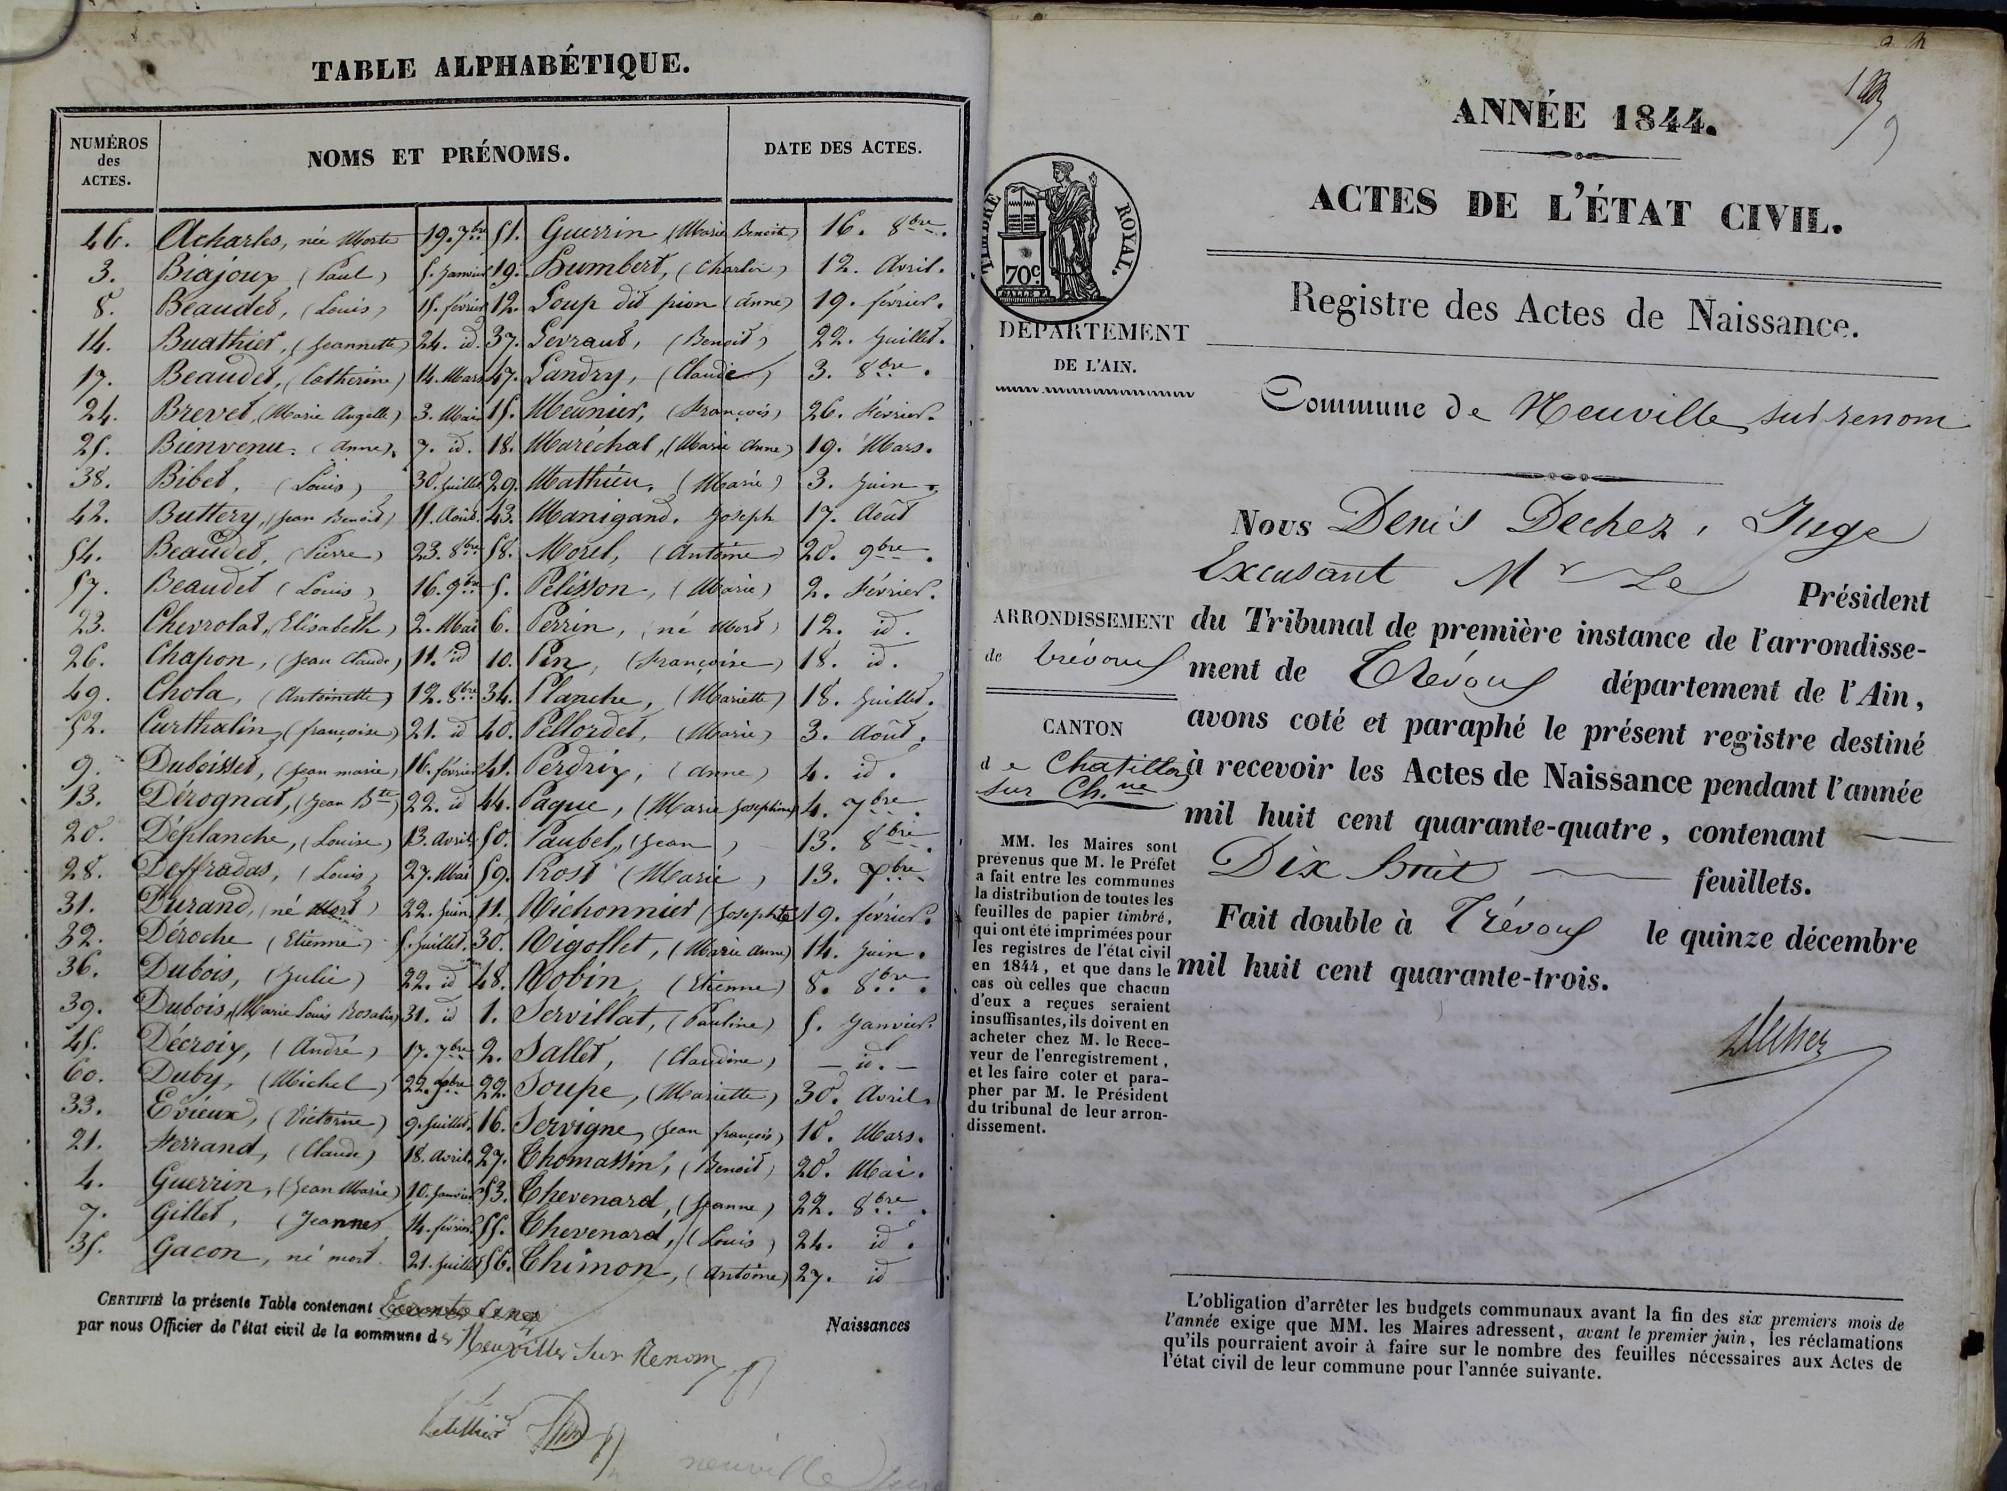 TABLE ALPHABÉTIQUE.
NUMÉROS
des
ACTES.
NOMS ET PRÉNOMS.
DATE DES ACTES.
46. Acharles, née Morte 19. 7bre
3. Biajoux, (Paul) 5. Janvier
8. Beaudet, (Louis) 15. février
14. Buathier, (Jeannette) 24. id.
17. Beaudet, (Catherine) 14. Mars
24. Brevet, (Marie Angelle) 3. Mai
25. Bienvenu. (Anne). 7. id.
38. Bibet, (Louis) 30. Juillet
42. Buttery, (Jean Benoit) 11. Août.
54. Beaudet, (Pierre) 23. 8bre
57. Beaudet (Louis) 16. 9bre
23. Chevrolat, (Elisabeth) 2. Mai
26. Chapon, (Jean Claude) 11. id
49. Chola, (Antoinette) 12. 8bre
52. Curthalin, (françoise) 21. id
9. Duboisset, (Jean marie) 16. février
13. Dérognat, (Jean Bte) 22. id
20. Déplanche, (Louise) 13. Avril.
28. Deffradas, (Louis) 27. Mai
31. Durand, (né Mort) 22. Juin
32. Déroche (Etienne) 5. Juillet.
36. Dubois, (Julie) 22. id
39. Dubois, (Marie Louis Rosalie) 31. id
45. Décroix, (André) 17. 7bre
60. Duby, (Michel) 22.
33. Evieux, (Victorine) 9. Juillet.
21. Ferrand, (Claude) 18. Avril.
4. Guerrin, (Jean Marie) 10. Janvier
7. Gillet, (Jeanne) 14. février
35. Gacon, né mort. 21. Juillet
51. Guerrin (Marie Benoite) 16. 8bre.
19. Humbert, (Charles) 12. Avril.
12. Loup dit pion (Anne) 19. février.
37. Levraut, (Benoit) 22. Juillet.
47. Landry, (Claude) 3. 8bre.
15. Meunier, (François) 26. Février.
18. Maréchal, (Marie Anne) 19. Mars.
29. Mathieu, (Marie) 3. Juin.
43. Manigand. Joseph 17. Août
58. Morel, (Antoine) 20. 9bre.
5. Pelisson, (Marie) 2. Février.
6. Perrin, (né Mort) 12. id.
10. Pin, (Françoise) 18. id.
34. Planche, (Mariette) 18. Juillet.
40. Pellordet, (Marie) 3. Août.
41. Perdrix, (Anne) 4. id.
44. Paque, (Marie Josephine) 4. 7bre.
50. Paubel, (Jean) 13. 8bre.
59. Prost (Marie) 13.
11. Richonnier (Josephte) 19. février.
30. Rigollet, (Marie Anne) 14. Juin.
48. Robin, (Etienne) 8. 8bre.
1. Servillat, (Pauline) 5. Janvier.
2. Sallet, (Claudine) — id. —
22. Soupe, (Mariette) 30. Avril.
16. Servigne, (Jean françois) 10. Mars.
27. Thomassin, (Benoit) 20. Mai.
53. Thevenard, (Jeanne) 22. 8bre.
55. Thevenard, (Louis) 24. id.
56. Thimon, (Antoine) 27. id
CERTIFIÉ la présente Table contenant Naissances
par nous Officier de l'état civil de la commune de Neuville Sur Renom
neuville
ANNÉE 1844.
ACTES DE L'ÉTAT CIVIL.
TIMBRE ROYAL.
70c
Registre des Actes de Naissance.
DÉPARTEMENT
DE L'AIN.
Commune de Neuville sur renom
Nous Denis Dechez, Juge
Excusant Mr Le Président
ARRONDISSEMENT
de trévoux
du Tribunal de première instance de l'arrondisse-
ment de Trévoux département de l'Ain,
CANTON
de Chatillon
sur Ch.ne
avons coté et paraphé le présent registre destiné
à recevoir les Actes de Naissance pendant l'année
mil huit cent quarante-quatre, contenant
Dix huit feuillets.
Fait double à Trévoux le quinze décembre
mil huit cent quarante-trois.
Dechez
MM. les Maires sont
prévenus que M. le Préfet
a fait entre les communes
la distribution de toutes les
feuilles de papier timbré,
qui ont été imprimées pour
les registres de l'état civil
en 1844, et que dans le
cas où celles que chacun
d'eux a reçues seraient
insuffisantes, ils doivent en
acheter chez M. le Rece-
veur de l'enregistrement,
et les faire coter et para-
pher par M. le Président
du tribunal de leur arron-
dissement.
L'obligation d'arrêter les budgets communaux avant la fin des six premiers mois de
l'année exige que MM. les Maires adressent, avant le premier juin, les réclamations
qu'ils pourraient avoir à faire sur le nombre des feuilles nécessaires aux Actes de
l'état civil de leur commune pour l'année suivante.